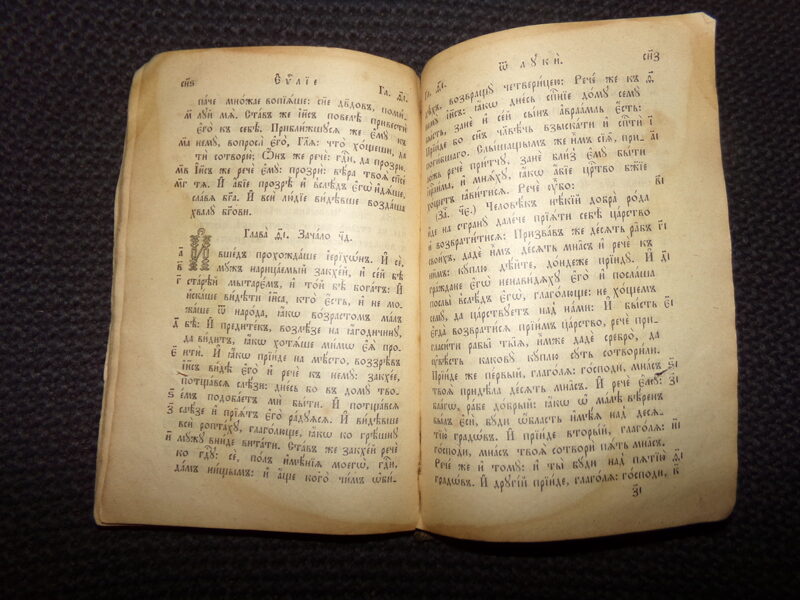 сн҃ѕ Єѵⷢ҇лїе Гл. и҃і.
па́че мно́жае вопїѧ́ше: сн҃е дв҃довъ, поми́-
м҃ луй мѧ̀. Ста́въ же і҆и҃съ повелѣ̀ привестѝ
є҆го̀ къ себѣ̀. Прибли́жшусѧ же є҆мꙋ̀ къ
м҃а немꙋ̀, вопросѝ є҆го̀, Гл҃ѧ: что̀ хо́щеши, да
тѝ сотворю̀; Ѻ҆́нъ же речѐ: гдⷭ҇и, да прозрю̀.
м҃в І҆и҃съ же речѐ є҆мꙋ̀: прозрѝ: вѣ́ра твоѧ̀ сп҃се́
м҃г тѧ. И҆ а҆́бїе прозрѣ̀ и҆ в̾слѣ́дъ є҆гѡ̀ и҆дѧ́ше,
сла́вѧ бг҃а. И҆ всѝ лю́дїе ви́дѣвше возда́ша
хвалꙋ̀ бг҃ови.
Глава̀ ѳ҃і. Зача́ло ч҃д.
а҃ И҆ вше́дъ прохожда́ше і҆ерїхѡ́нъ. И҆ сѐ,
в҃ мꙋ́жъ нарица́емый закхе́й, и҆ се́й бѣ̀
старѣ́й мытарє́мъ, и҆ то́й бѣ̀ бога́тъ: И҆
г҃ и҆ска́ше ви́дѣти і҆и҃са, кто̀ є҆́сть, и҆ не мо-
жа́ше ѿ наро́да, ꙗ҆́кѡ во́зрастомъ ма́лъ
д҃ бѣ̀: И҆ предите́къ, возлѣ́зе на ꙗ҆годи́чинꙋ,
да ви́дитъ, ꙗ҆́кѡ хотѧ́ше ми́мѡ є҆ѧ̀ про-
е҃ и҆тѝ. И҆ ꙗ҆́кѡ прїи́де на мѣ́сто, воззрѣ́въ
і҆и҃съ ви́дѣ є҆го̀ и҆ речѐ къ немꙋ̀: закхе́е,
потща́всѧ слѣ́зи: дне́сь бо въ домꙋ̀ тво-
ѕ҃ е́мъ подоба́етъ мѝ бы́ти. И҆ потща́всѧ
з҃ слѣ́зе и҆ прїѧ́тъ є҆го̀ ра́дꙋѧсѧ. И҆ ви́дѣвше
всѝ ропта́хꙋ, глаго́люще, ꙗ҆́кѡ ко грѣ́шнꙋ
и҃ мꙋ́жꙋ вни́де вита́ти. Ста́въ же закхе́й речѐ
ко гдⷭ҇ꙋ: сѐ, по́лъ и҆мѣ́нїѧ моегѡ̀, гдⷭ҇и,
да́мъ ни́щымъ: и҆ а҆́ще кого̀ чи́мъ ѡ҆би́-
Ѿ лꙋкѝ. сн҃з
Гл. ѳ҃і.
дѣхъ, возвращꙋ̀ четвери́цею: Рече́ же къ ѳ҃
немꙋ̀ і҆и҃съ: ꙗ҆́кѡ дне́сь сп҃нїе до́мꙋ семꙋ̀
бы́сть, занѐ и҆ се́й сы́нъ а҆враа́мль є҆́сть:
Прїи́де бо сн҃ъ чл҃вѣ́чь взыска́ти и҆ сп҃стѝ і҃
поги́бшаго. Слы́шащымъ же и҆̀мъ сїѧ̑, при- а҃і
ло́жь речѐ при́тчꙋ, занѐ бли́з̾ є҆мꙋ̀ бы́ти
і҆ерⷭ҇ли́ма, и҆ мнѧ́хꙋ, ꙗ҆́кѡ а҆́бїе црⷭ҇тво бж҃їе
хо́щетъ ꙗ҆ви́тисѧ. Речѐ ᲂу҆̀бо: в҃і
(За҃. ч҃е.) Человѣ́къ нѣ́кїй добра̀ ро́да
и҆́де на странꙋ̀ дале́че прїѧ́ти себѣ̀ ца́рство
и҆ возврати́тисѧ. Призва́въ же де́сѧть ра̑бъ г҃і
свои́хъ, дадѐ и҆̀мъ де́сѧть мна́съ и҆ речѐ къ
ни̑мъ: кꙋ́плю дѣ́йте, до́ндеже прїидꙋ̀. И҆ д҃і
гра́ждане є҆гѡ̀ ненави́дѧхꙋ є҆го̀ и҆ посла́ша
послы̀ в̾слѣ́дъ є҆гѡ̀, глаго́люще: не хо́щемъ
семꙋ̀, да ца́рствꙋетъ над̾ на́ми: И҆ бы́сть є҃і
є҆гда̀ возврати́сѧ прїи́мъ ца́рство, речѐ при-
гласи́ти рабы̑ ты̑ѧ, и҆̀мже дадѐ сребро̀, да
ᲂу҆вѣ́сть каковꙋ̀ кꙋ́плю сꙋ́ть сотвори́ли.
Прїи́де же пе́рвый, глаго́лѧ: го́споди, мна́съ ѕ҃і
твоѧ̀ придѣ́ла де́сѧть мна́съ. И҆ речѐ є҆мꙋ̀: з҃і
бла́гїй, ра́бе до́брый: ꙗ҆́кѡ ѡ҆ ма́лѣ вѣ́ренъ
бы́лъ є҆сѝ, бꙋ́ди ѡ҆́бласть и҆мѣ́ѧ над̾ десѧ-
тїю̀ градѡ́въ. И҆ прїи́де вторы́й, глаго́лѧ: и҃і
го́споди, мна́съ твоѧ̀ сотворѝ пѧ́ть мна́съ.
Рече́ же и҆ томꙋ̀: и҆ ты̀ бꙋ́ди над̾ пѧтїю̀ ѳ҃і
градѡ́въ. И҆ дрꙋгі́й прїи́де, глаго́лѧ: го́споди, к҃
з҃і